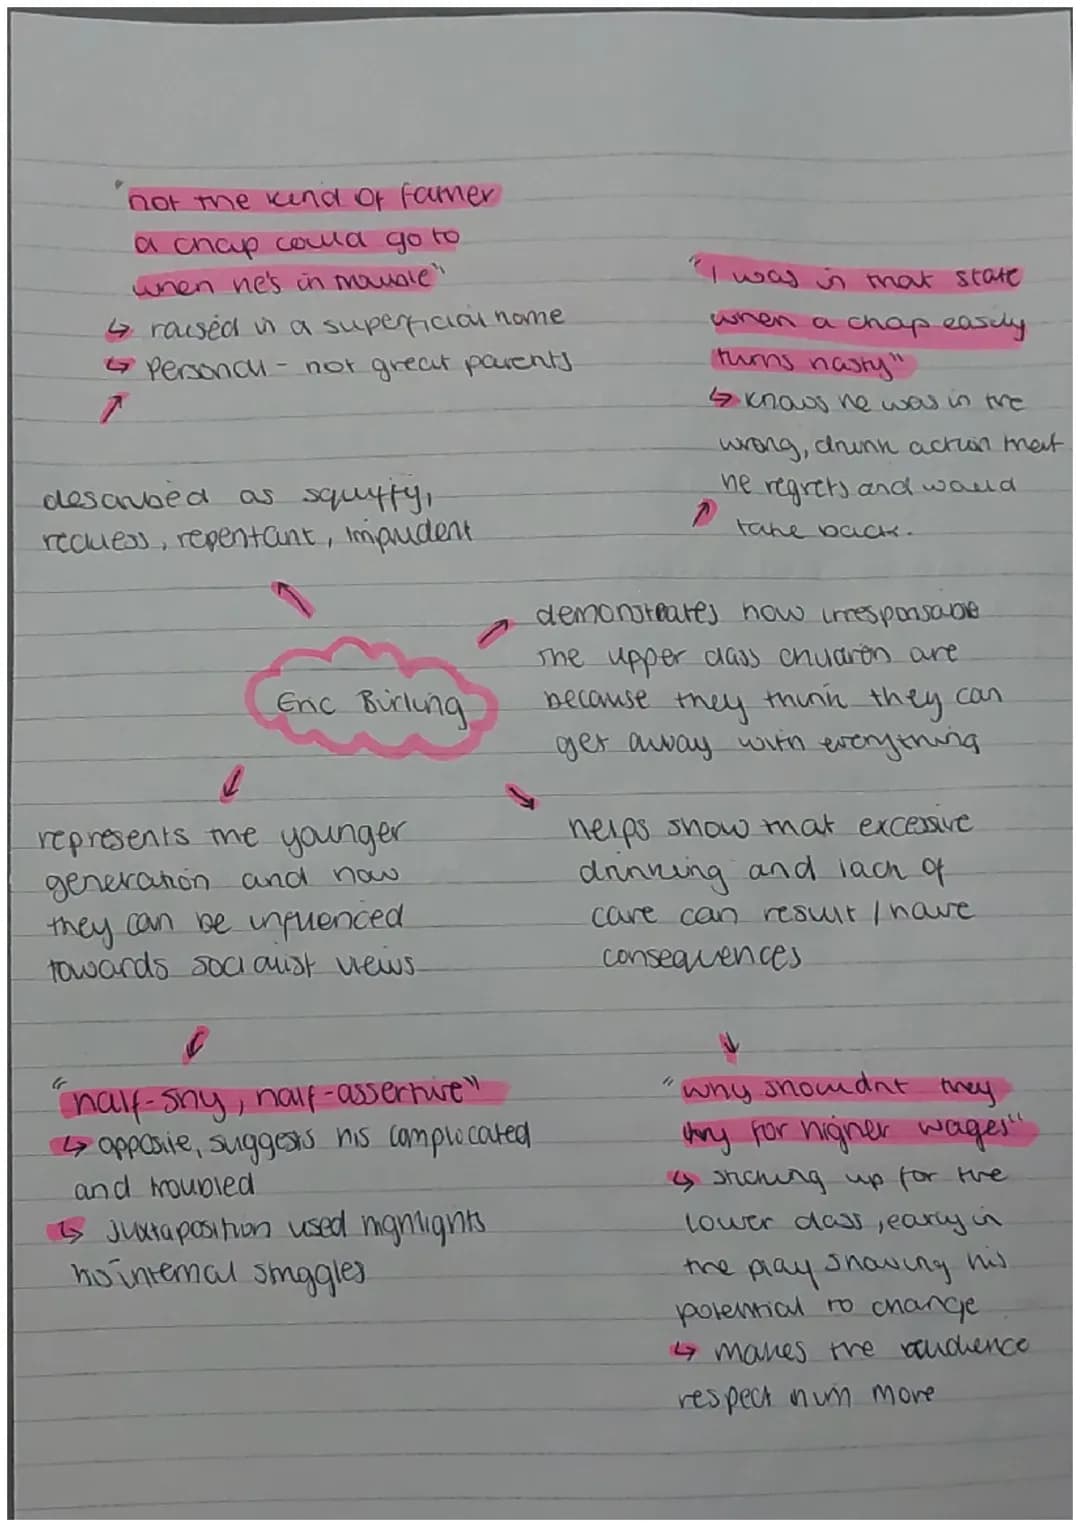 "not the kind of father
a chap could go to
when he's in trouble"
↳ raised in a superficial home
↳ Personal - not great parents
"I was in that state
when a chap easily
turns nasty"
↳ knows he was in the
wrong, drunk action that
he regrets and would
take back.
described as squiffy,
reckless, repentant, impudent
demonstreates how irresponsable
the upper class children are
because they think they can
get away with everything
Eric Birling
represents the younger
generation and how
they can be influenced
towards socialist views
helps show that excessive
drinking and lack of
care can result / have
consequences
"half-shy, half-assertive"
↳ opposite, suggests his complocated
and troubled
↳ Juxtaposition used highlights
his internal struggles
"why shouldnt they
try for higher wages"
↳ sticking up for the
lower class, early in
the play showing his
potential to change
↳ makes the audience
respect him more